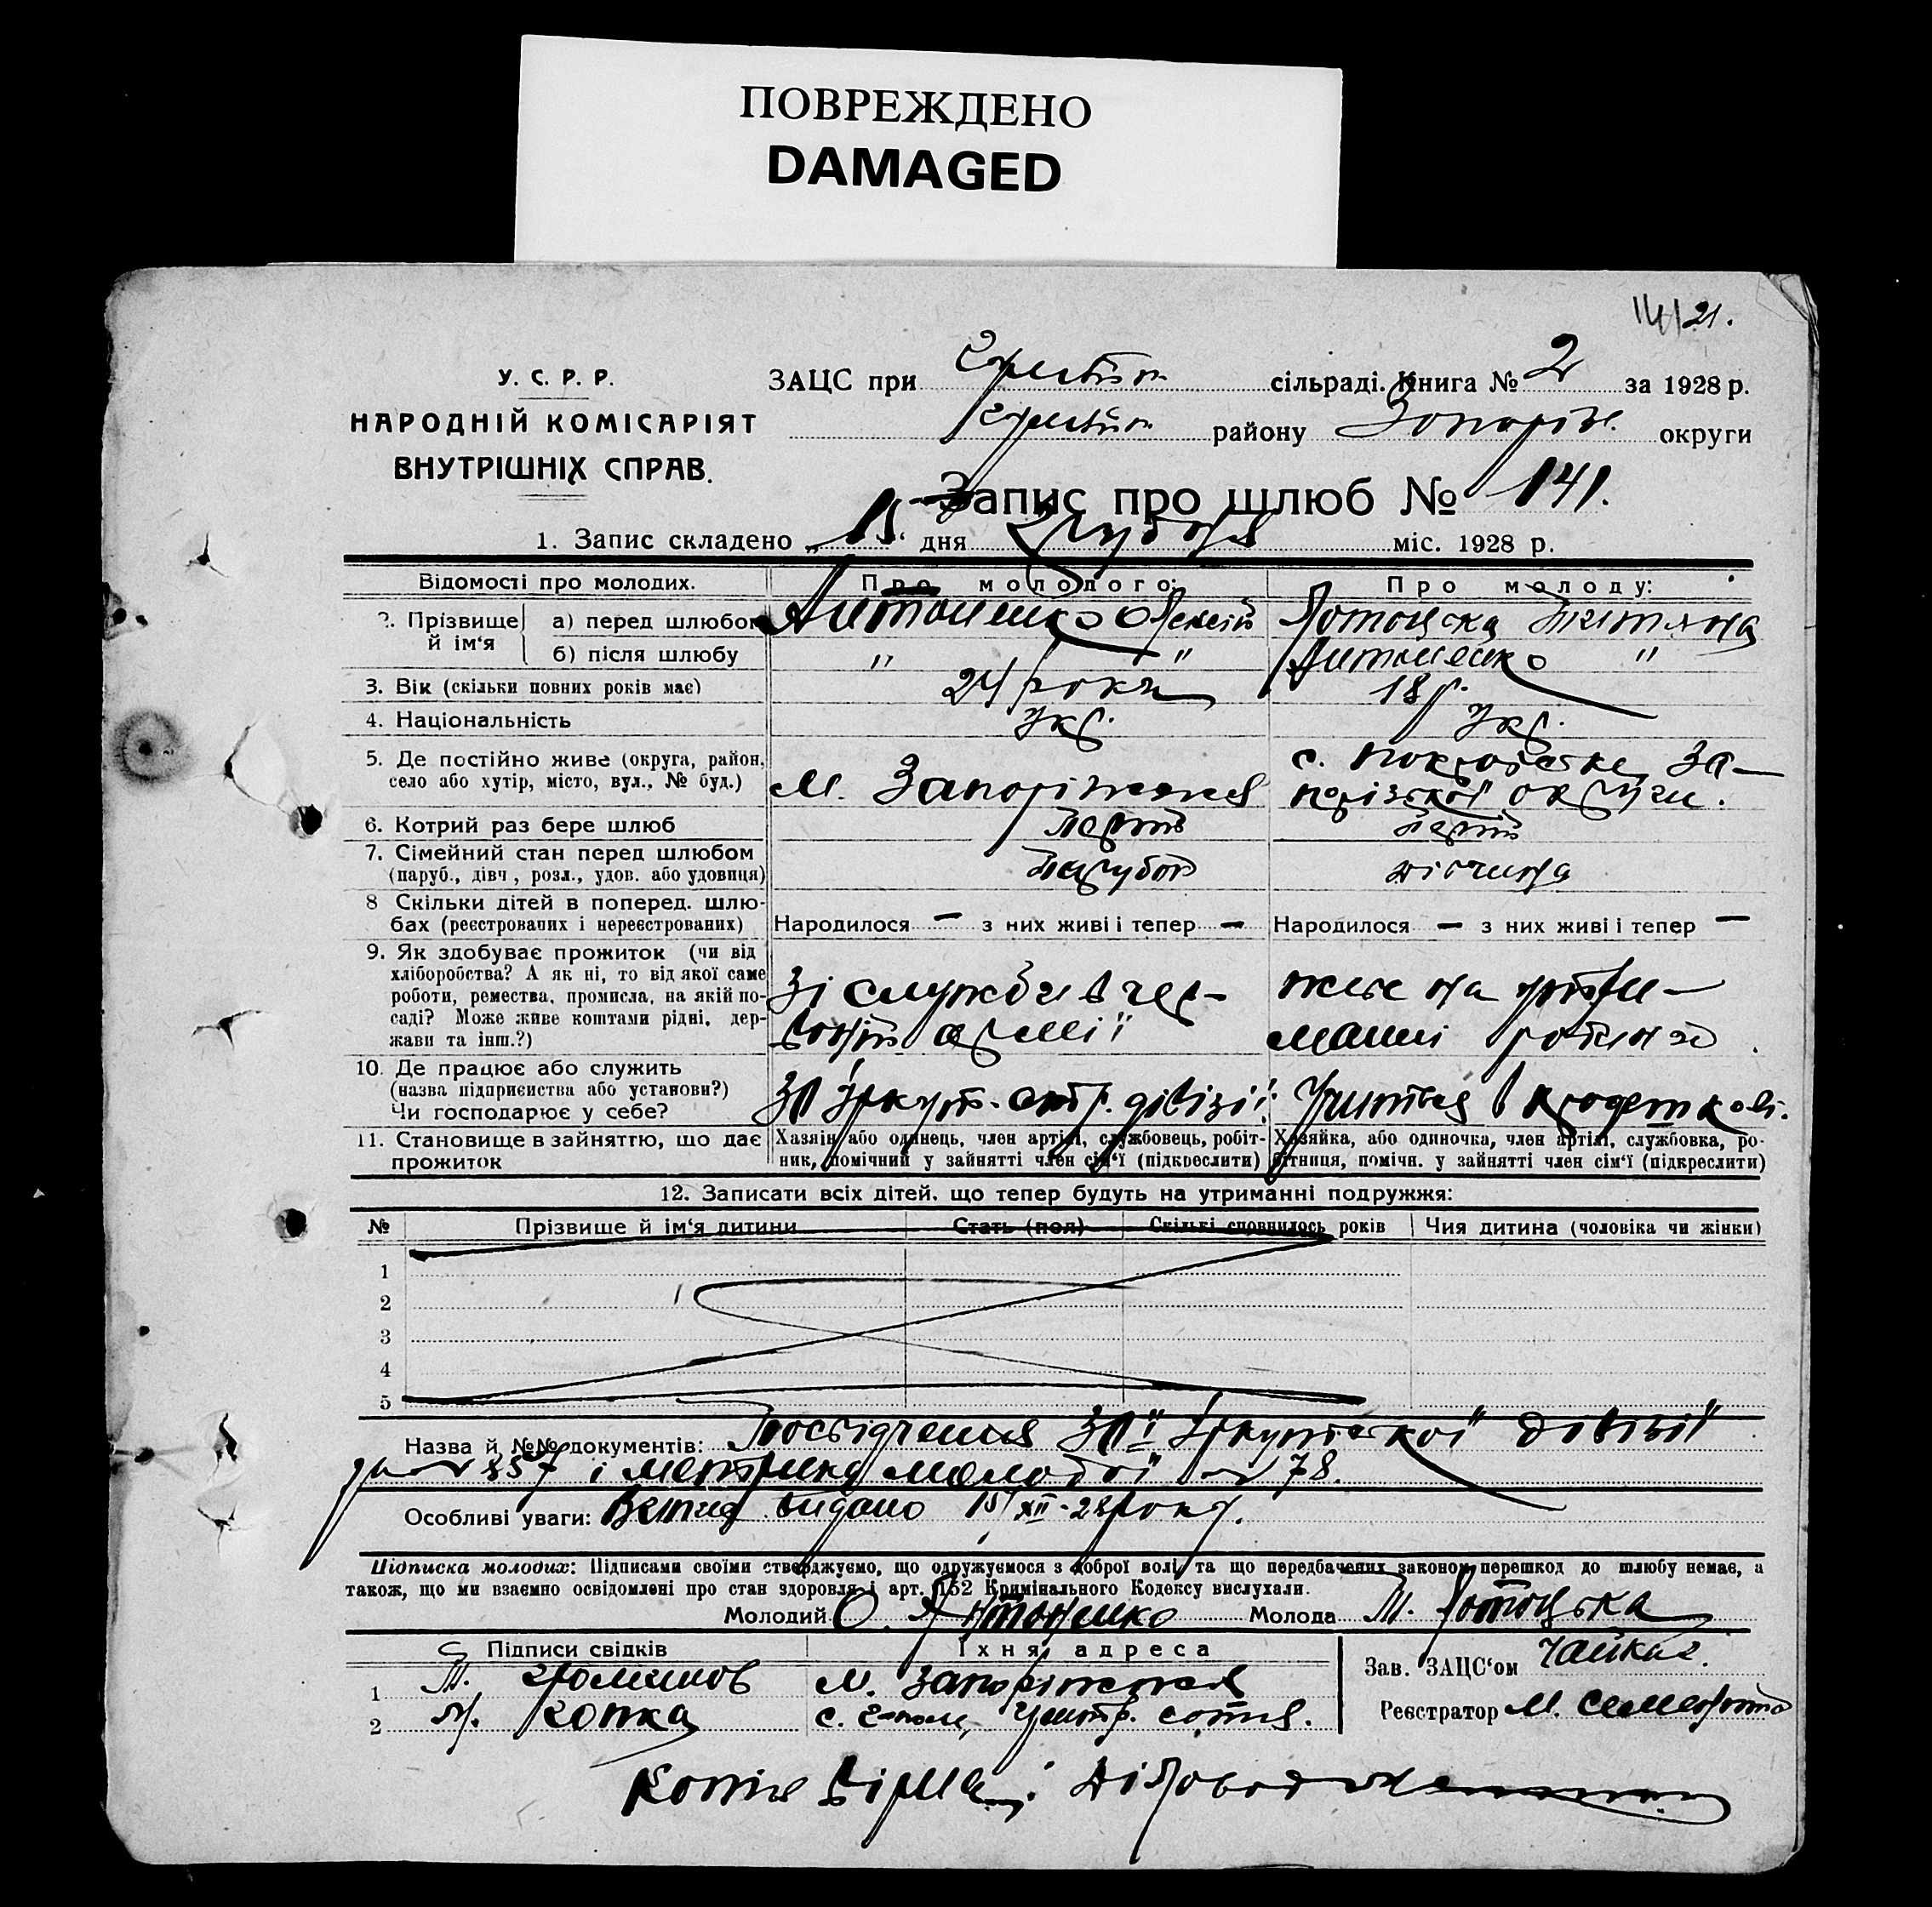 ПОВРЕЖДЕНО
DAMAGED
141 21.
У. С. Р. Р.
НАРОДНІЙ КОМІСАРІЯТ
ВНУТРІШНІХ СПРАВ.
ЗАЦС при сільраді. Книга № 2 за 1928 р.
району Запоріж. округи
Запис про шлюб № 141.
1. Запис складено „15“ дня Грудня міс. 1928 р.
Відомості про молодих. Про молодого: Про молоду:
2. Прізвище й ім‘я
а) перед шлюбом Антоненко Олексій Потоцька Титяна
б) після шлюбу " " Антоненко "
3. Вік (скільки повних років має) 24 роки 18 р.
4. Національність Укр. Укр.
5. Де постійно живе (округа, район, село або хутір, місто, вул., № буд.) м. Запоріжжя с. Покровське, За-
порізької округи.
6. Котрий раз бере шлюб перший перший
7. Сімейний стан перед шлюбом
(паруб., дівч., розл., удов. або удовиця) парубок дівчина
8 Скільки дітей в поперед. шлю-
бах (реєстрованих і нереєстрованих) Народилося — з них живі і тепер — Народилося — з них живі і тепер —
9. Як здобуває прожиток (чи від
хліборобства? А як ні, то від якої саме
роботи, ремества, промисла, на якій по-
саді? Може живе коштами рідні, дер-
жави та інш.?)
Зі служби в чер-
воній армії
живе на утри-
манні родини
10. Де працює або служить
(назва підприємства або установи?)
Чи господарює у себе?
30 Іркут. стр. дівізії
11. Становище в зайняттю, що дає
прожиток
Хазяїн або одинець, член артілі, службовець, робіт-
ник, помічний у зайнятті член сім‘ї (підкреслити)
Хазяйка, або одиночка, член артілі, службовка, ро-
бітниця, помічн. у зайнятті член сім‘ї (підкреслити)
12. Записати всіх дітей, що тепер будуть на утриманні подружжя:
№ Прізвище й ім‘я дитини Стать (пол) Скількі сповнилось років Чия дитина (чоловіка чи жінки)
1
2
3
4
5
Назва й №№ документів: Посвідчення 30ї Іркутської Дівізії
за № 857 і метрика молодої № 78.
Особливі уваги: Витяг видано 15/XII-28 року.
Підписка молодих: Підписами своїми стверджуємо, що одружуємося з доброї волі, та що передбачених законом перешкод до шлюбу немає, а
також, що ми взаємно освідомлені про стан здоровля і арт. 152 Кримінального Кодексу вислухали.
Молодий О. Антоненко Молода Т. Потоцька
Підписи свідків Їхня адреса
1 м. Запоріжжя
2 с.
Зав. ЗАЦС‘ом Чайка
Реєстратор М.
Копія вірна: Діловод